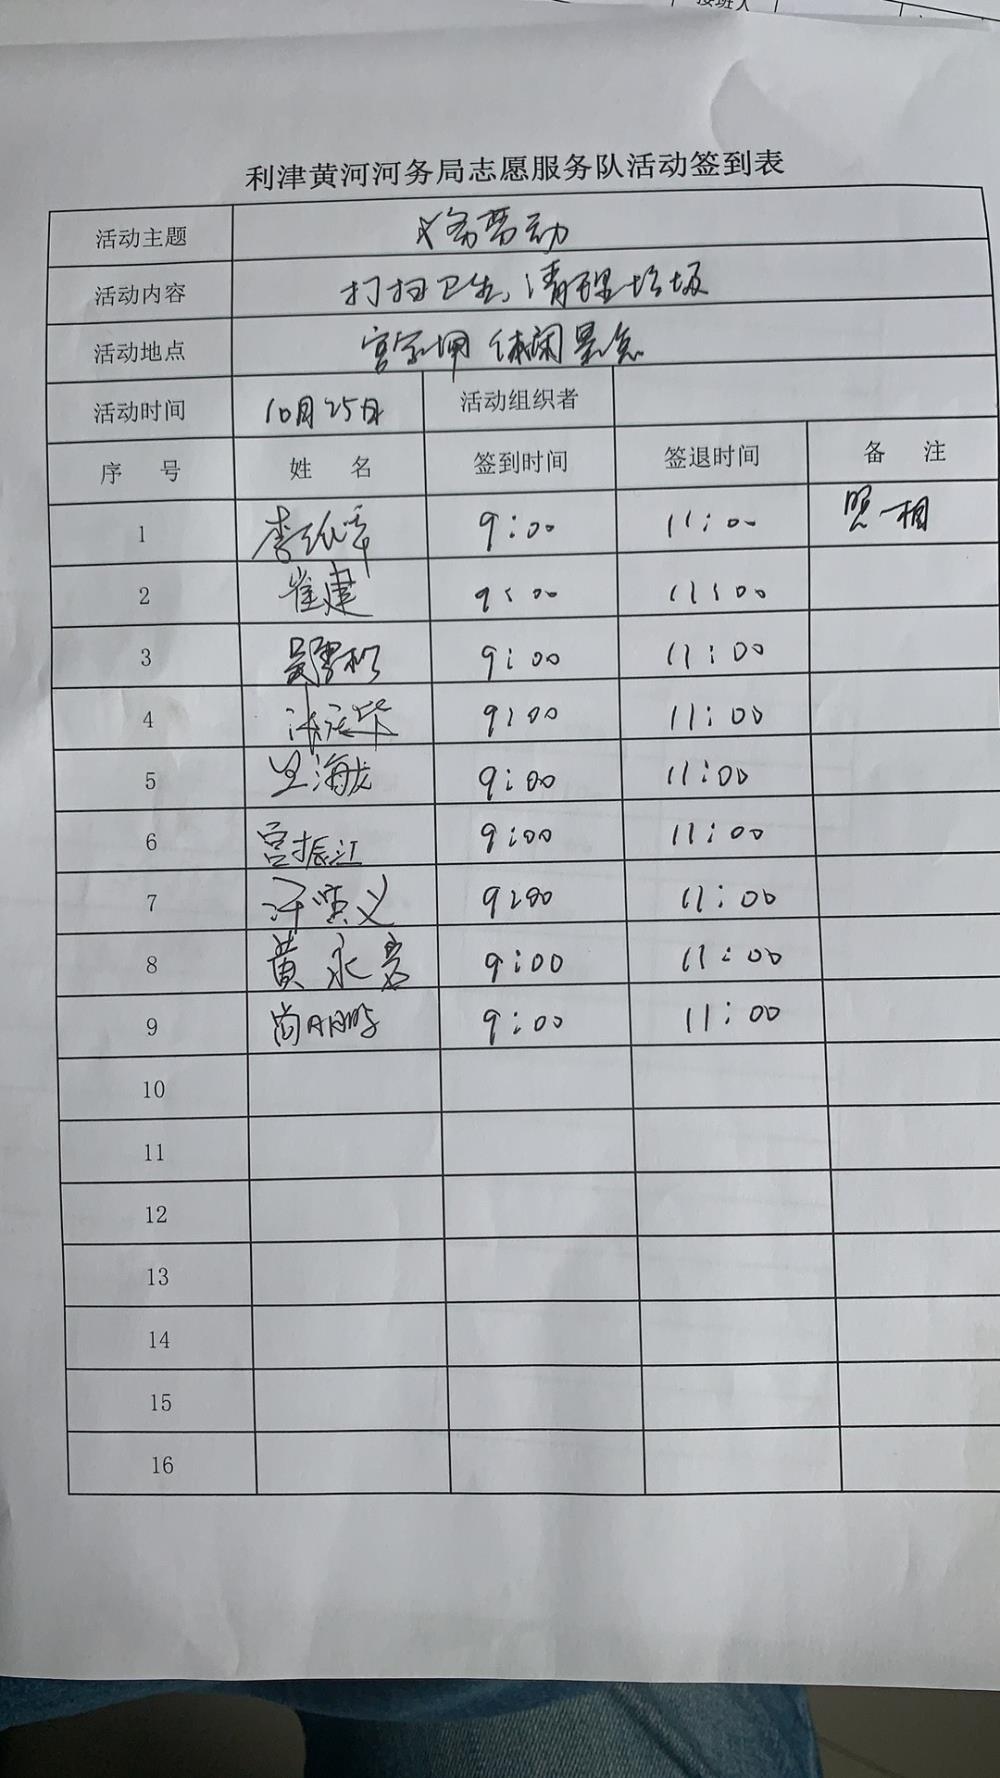 接班人
利津黄河河务局志愿服务队活动签到表
活动主题 义务劳动
活动内容 打扫卫生、清理垃圾
活动地点 宫家坝休闲景点
活动时间 10月25日 活动组织者
序 号 姓 名 签到时间 签退时间 备 注
1 9:00 11:00 照相
2 崔建 9:00 11:00
3 9:00 11:00
4 9:00 11:00
5 海龙 9:00 11:00
6 宫振江 9:00 11:00
7 义 9:00 11:00
8 黄永亮 9:00 11:00
9 尚月鹏 9:00 11:00
10
11
12
13
14
15
16